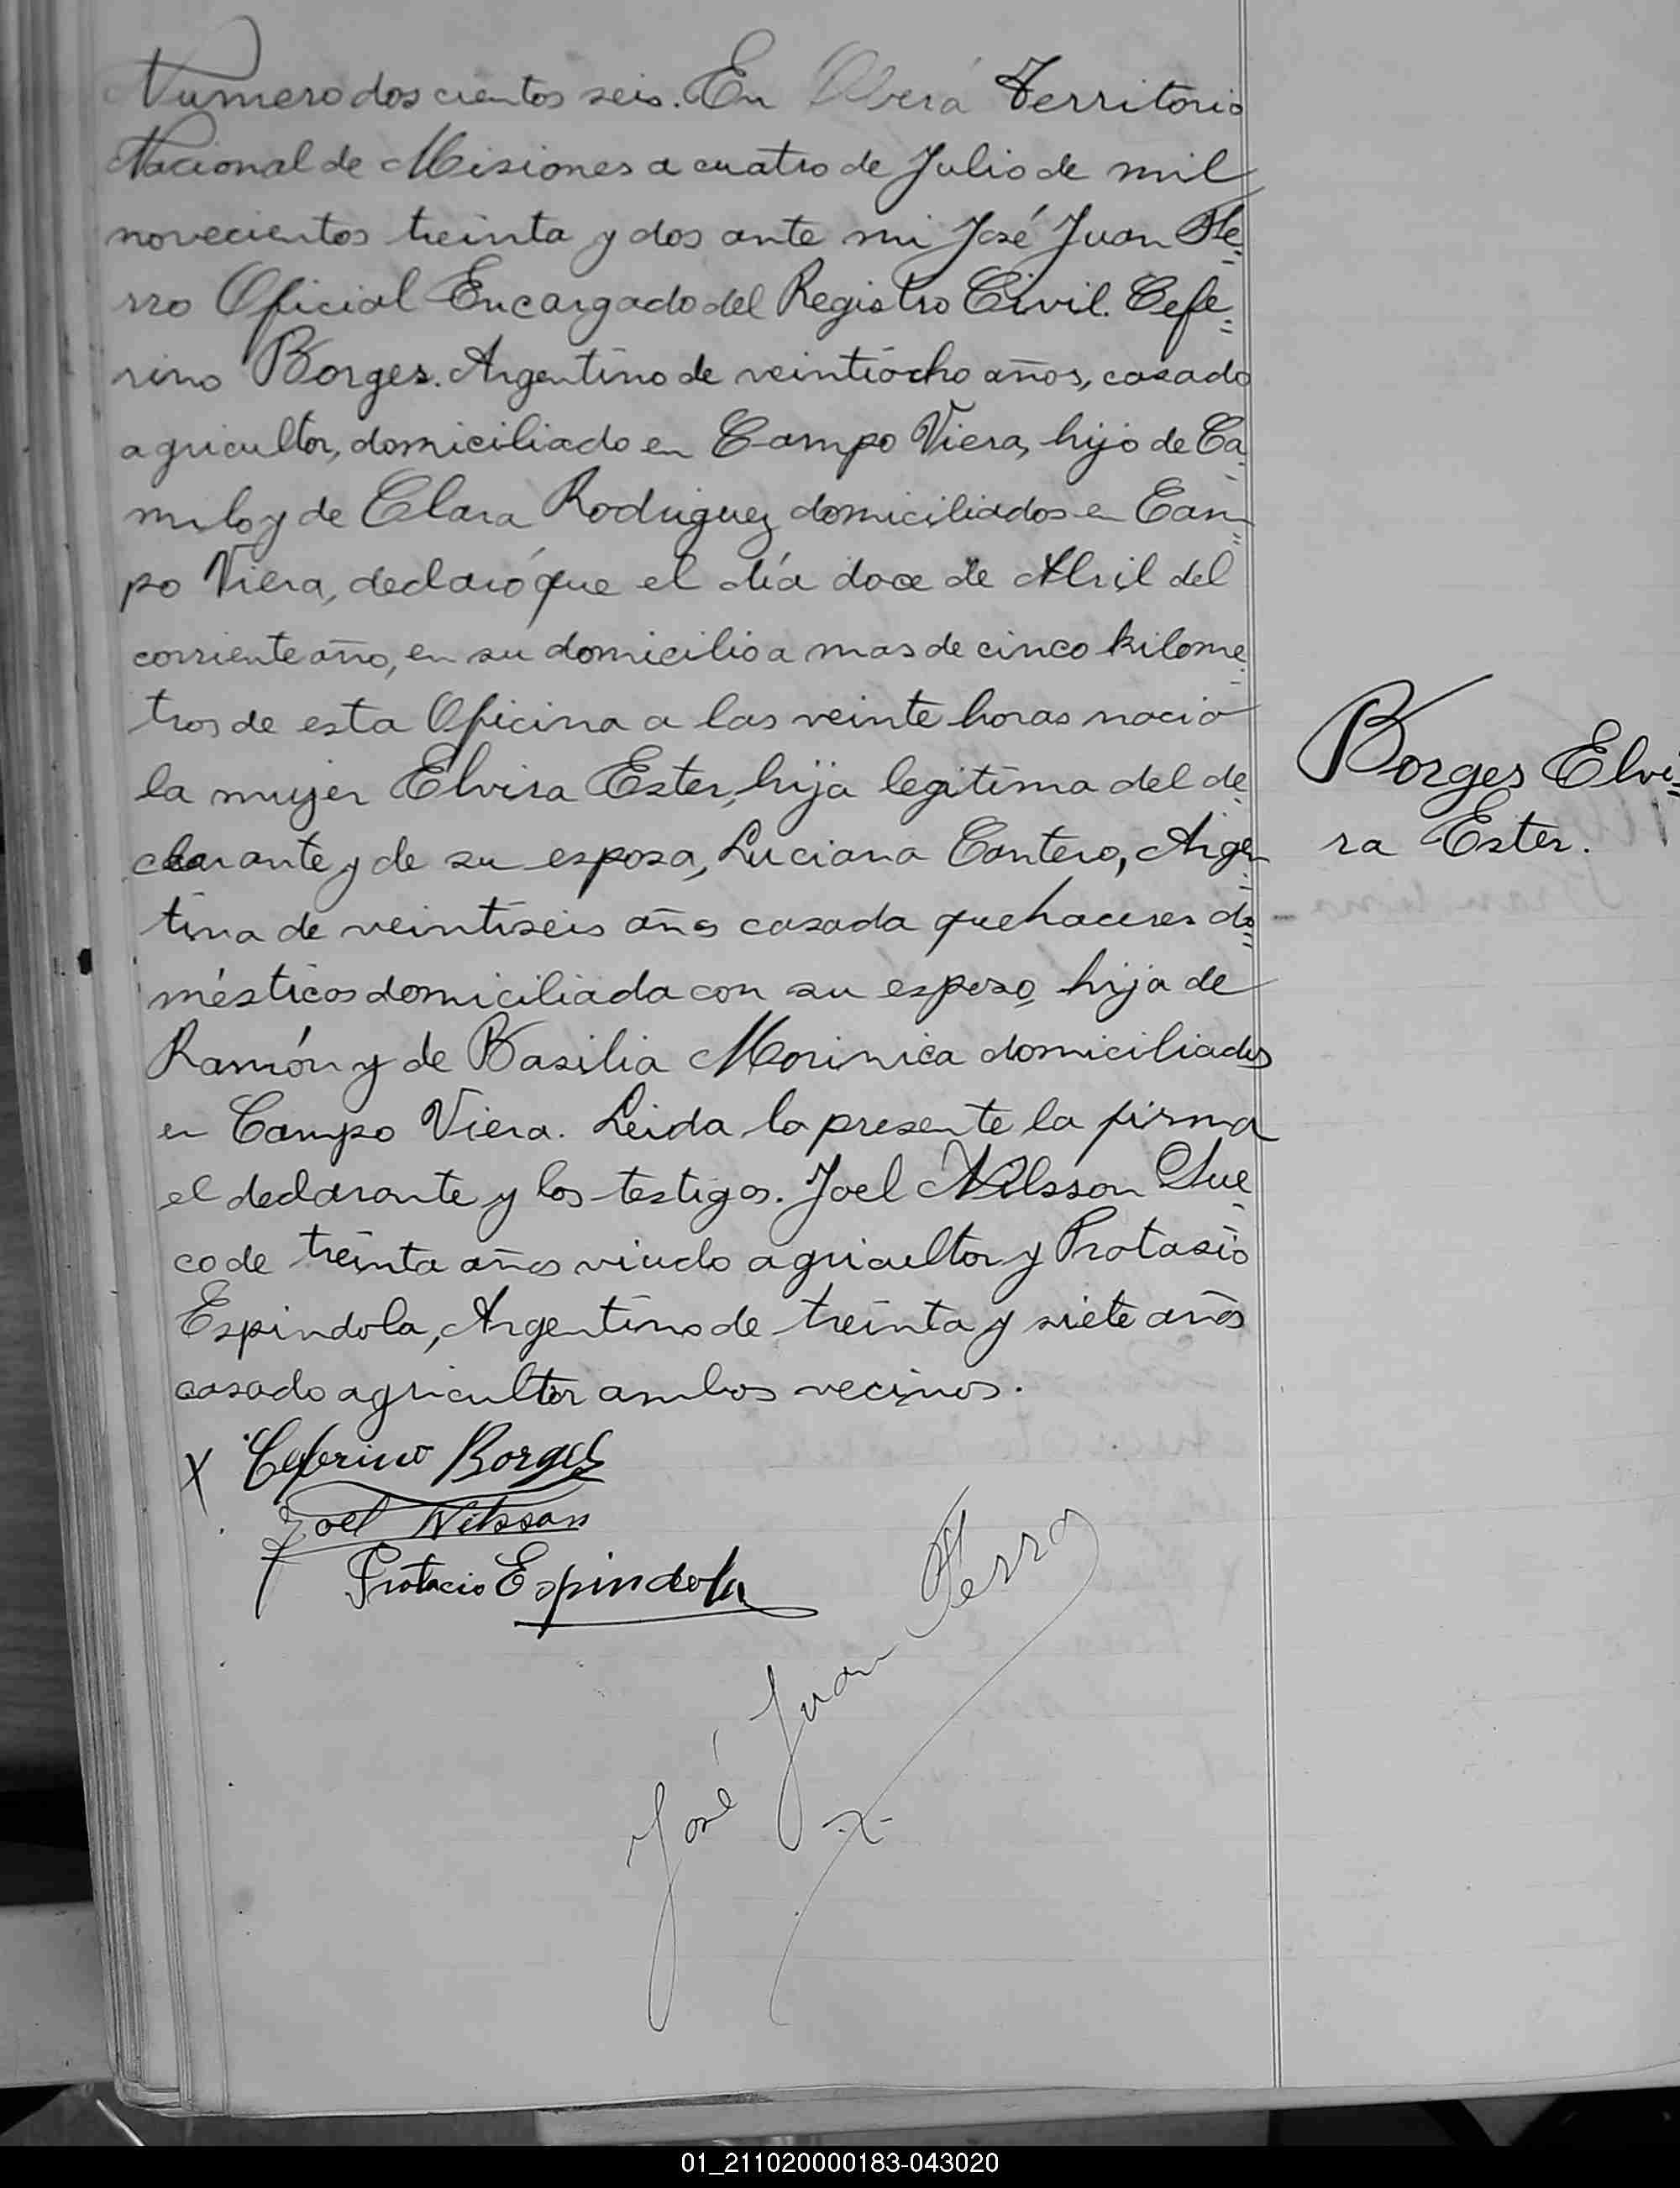 Numero dos cientos seis. En Oberá Territorio
Nacional de Misiones a cuatro de Julio de mil
novecientos treinta y dos ante mi José Juan Fe=
rro Oficial Encargado del Registro Civil. Cefe=
rino Borges. Argentino de veintiocho años, casado
agricultor, domiciliado en Campo Viera, hijo de Ca=
milo y de Clara Rodriguez domiciliados en Cam=
po Viera, declaró que el día doce de Abril del
corriente año, en su domicilio a mas de cinco kilome=
tros de esta Oficina a las veinte horas nacio
la mujer Elvira Ester, hija legitima del de=
clarante y de su esposa, Luciana Cantero, Argen=
tina de veintiseis años casada quehaceres do=
mésticos domiciliada con su esposo, hija de
Ramón y de Basilia domiciliados
en Campo Viera. Leida la presente la firma
el declarante y los testigos. Joel Nilsson Sue=
co de treinta años viudo agricultor y Protasio
Espindola, Argentino de treinta y siete años
casado agricultor ambos vecinos.
Borges Elvi=
ra Ester.
X Ceferino Borges
Joel Nilsson
Protacio Espindola
José Juan Ferro
01_211020000183-043020